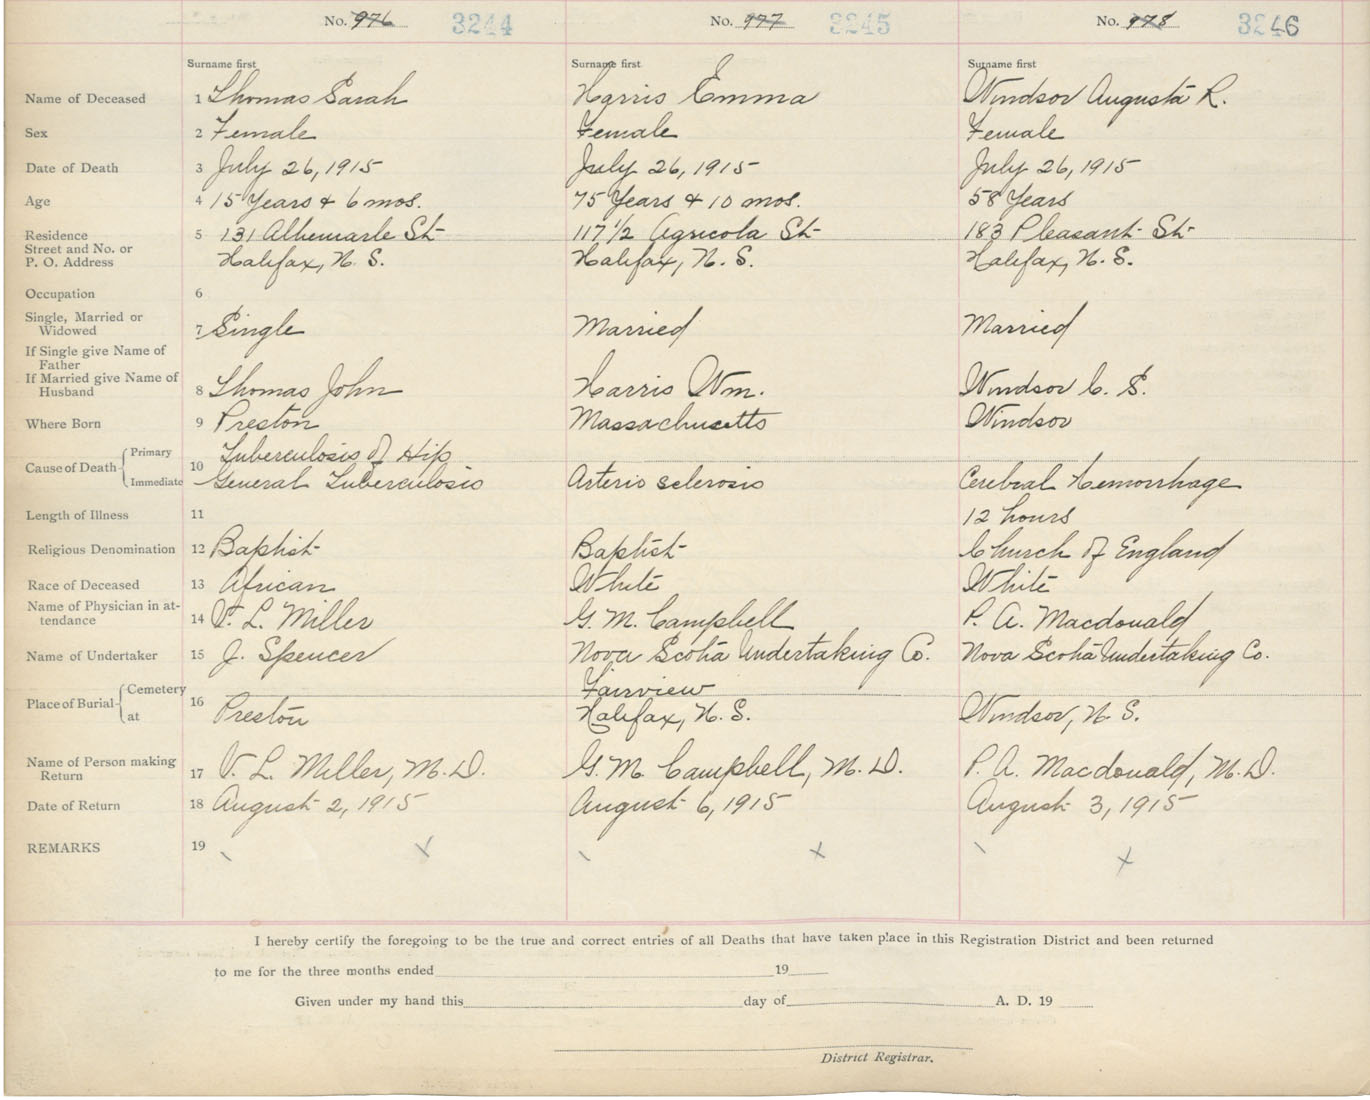 No. 976 3244 No. 977 3245 No. 978 3246
Surname first Surname first Surname first
Name of Deceased 1 Thomas Sarah Harris Emma Windsor Augusta R.
Sex 2 Female Female Female
Date of Death 3 July 26, 1915 July 26, 1915 July 26, 1915
Age 4 15 Years & 6 mos. 75 Years & 10 mos. 58 Years
Residence 5 131 Albemarle St 117 1/2 Agricola St 183 Pleasant St
Street and No. or
P. O. Address Halifax, N. S. Halifax, N. S. Halifax, N. S.
Occupation 6
Single, Married or
Widowed 7 Single Married Married
If Single give Name of
Father
If Married give Name of
Husband 8 Thomas John Harris Wm. Windsor C. S.
Where Born 9 Preston Massachusetts Windsor
Cause of Death Primary 10 Tuberculosis of Hip
Immediate General Tuberculosis Arterio sclerosis Cerebral Hemorrhage
Length of Illness 11 12 hours
Religious Denomination 12 Baptist Baptist Church of England
Race of Deceased 13 African White White
Name of Physician in at-
tendance 14 V. L. Miller G. M. Campbell P. A. Macdonald
Name of Undertaker 15 J. Spencer Nova Scotia Undertaking Co. Nova Scotia Undertaking Co.
Place of Burial Cemetery 16 Fairview
at Preston Halifax, N. S. Windsor, N. S.
Name of Person making
Return 17 V. L. Miller, M. D. G. M. Campbell, M. D. P. A. Macdonald, M. D.
Date of Return 18 August 2, 1915 August 6, 1915 August 3, 1915
REMARKS 19 \ x \ x \ x
I hereby certify the foregoing to be the true and correct entries of all Deaths that have taken place in this Registration District and been returned
to me for the three months ended 19
Given under my hand this day of A. D. 19
District Registrar.